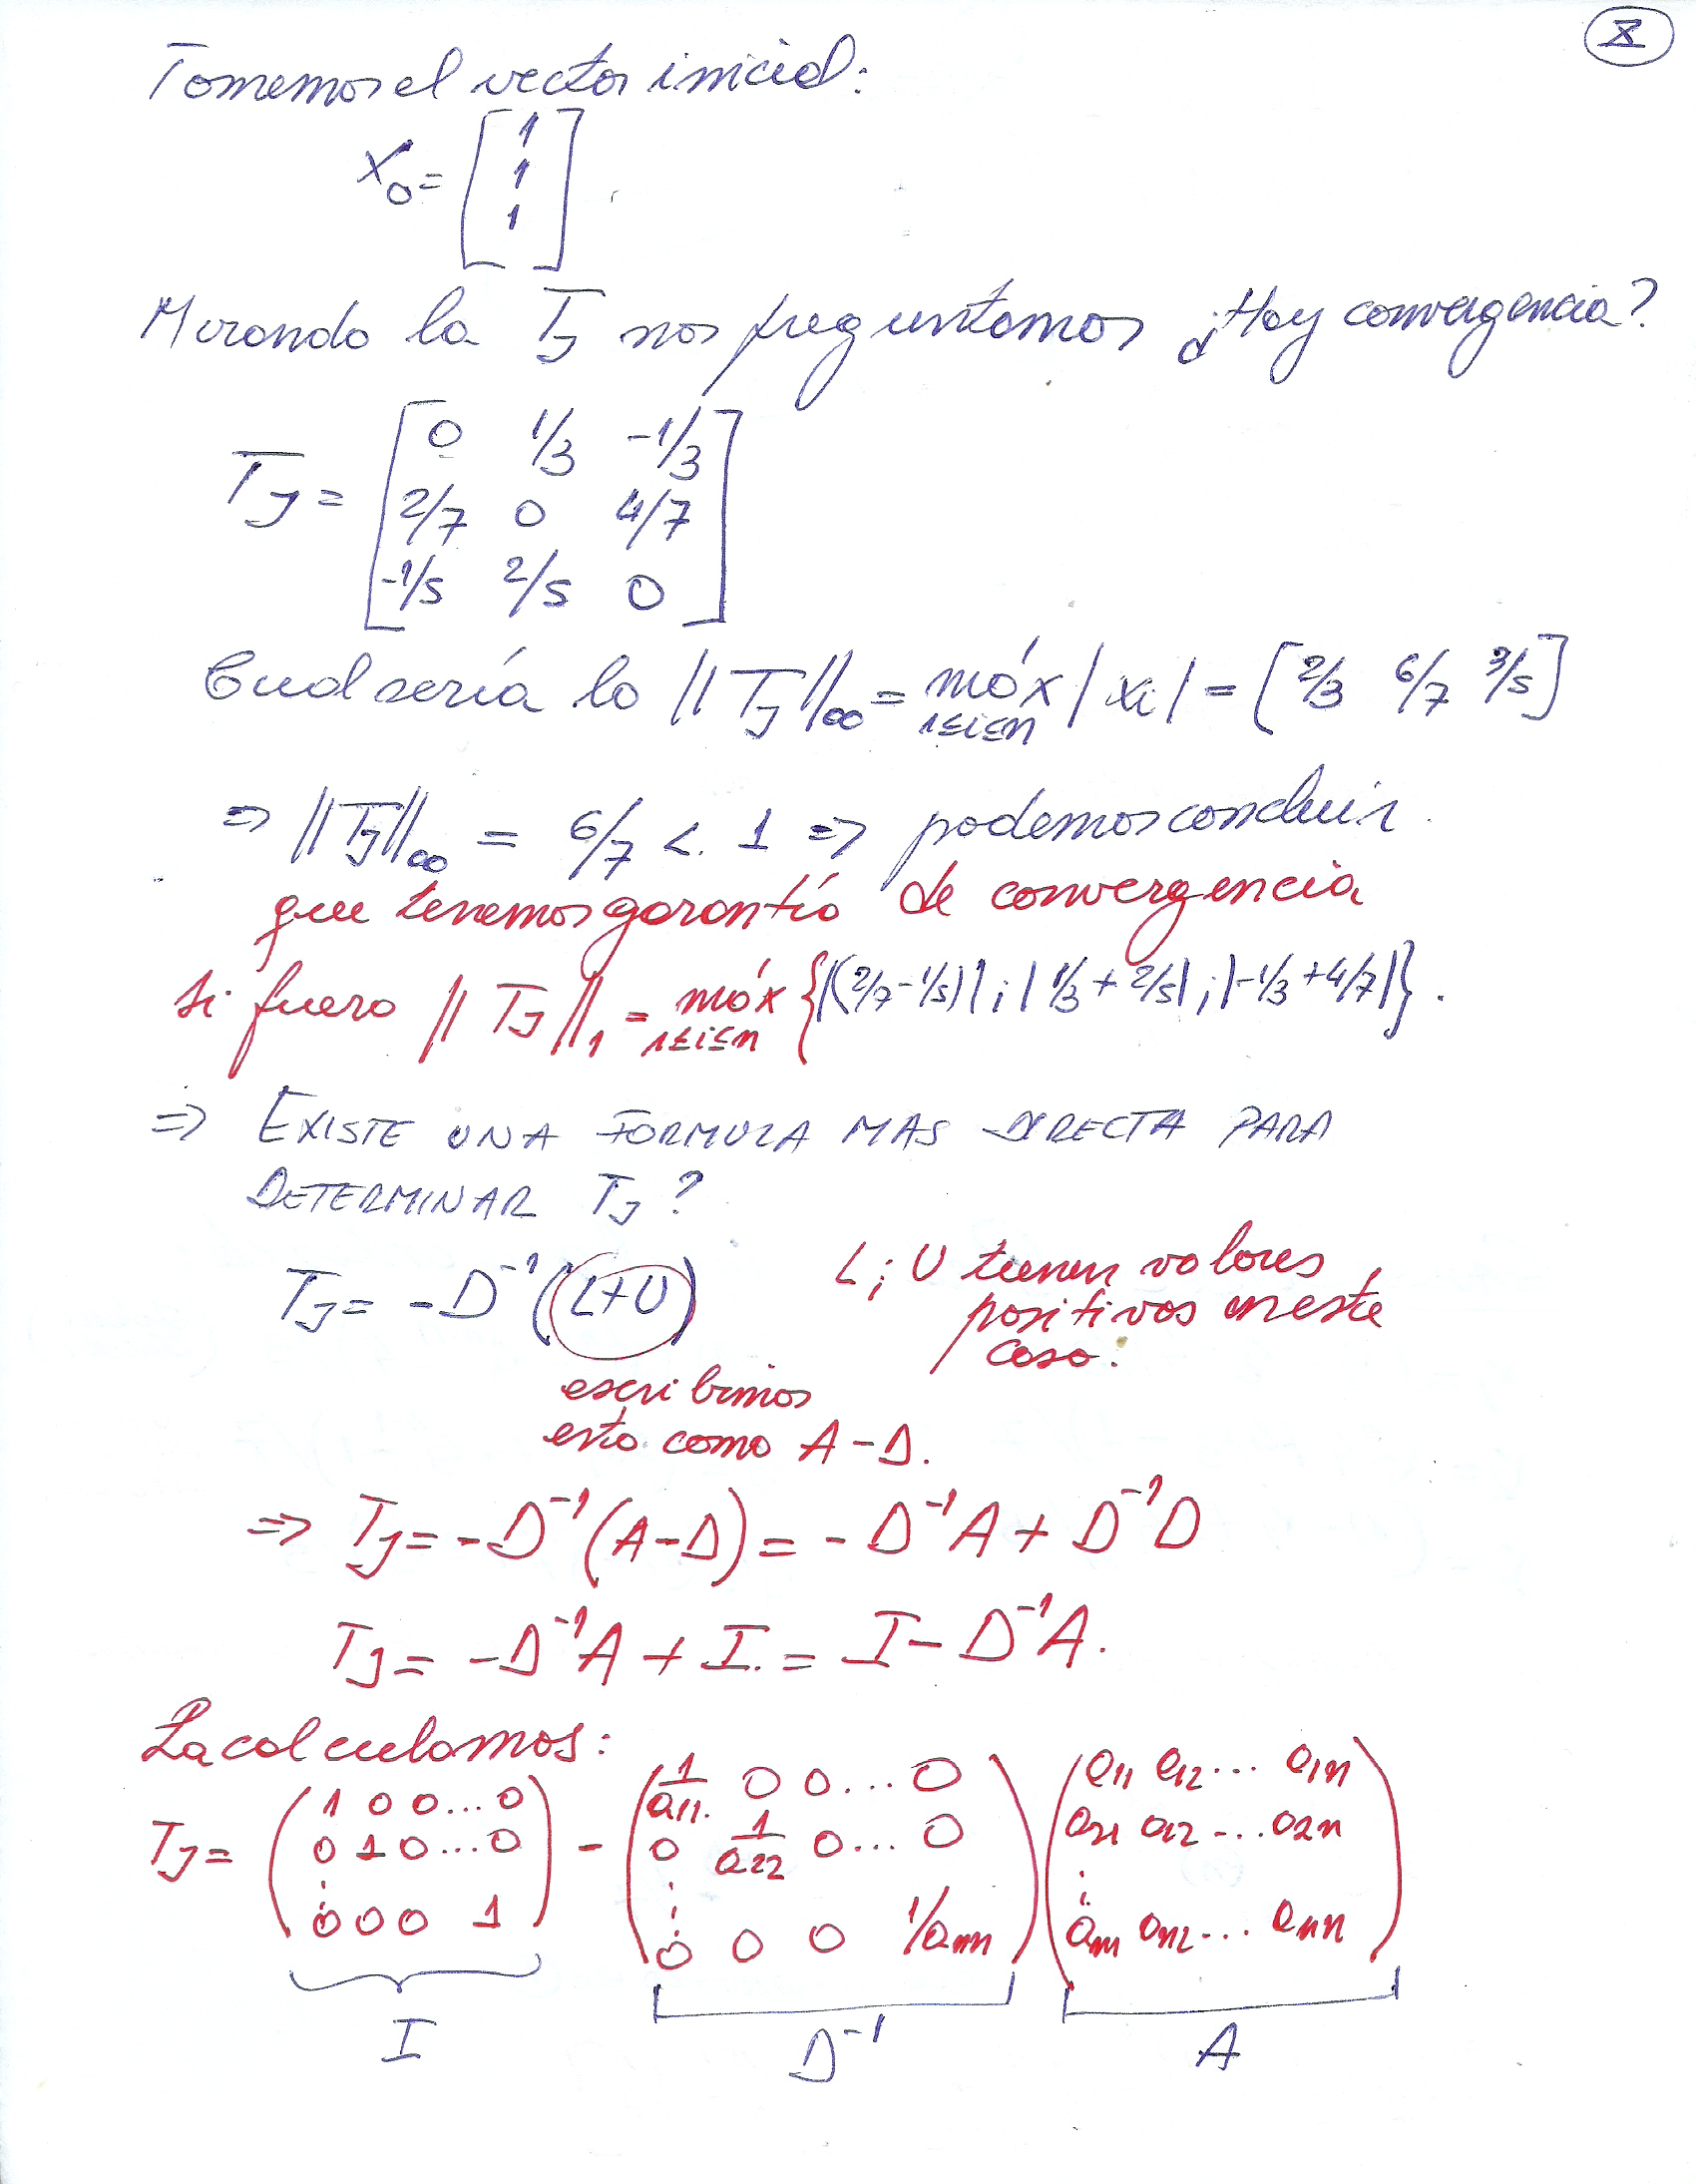 X
Tomemos el vector inicial:
X₀ = [1
1
1]
Mirando la TJ nos preguntamos ¿Hay convergencia?
TJ = [0 1/3 -1/3
2/7 0 4/7
-1/5 2/5 0]
Cual sería la ||TJ||∞ = máx 1≤i≤n |xi| = [2/3 6/7 3/5]
⇒ ||TJ||∞ = 6/7 < 1 ⇒ podemos concluir
que tenemos garantía de convergencia
Si fuera ||TJ||₁ = máx 1≤i≤n {|(2/7-1/5)|;|1/3+2/5|;|-1/3+4/7|}.
⇒ EXISTE UNA FORMULA MAS DIRECTA PARA
DETERMINAR TJ?
TJ = -D⁻¹(L+U) L;U tienen valores
positivos en este
caso.
escribimos
esto como A-D.
⇒ TJ = -D⁻¹(A-D) = -D⁻¹A + D⁻¹D
TJ = -D⁻¹A + I. = I - D⁻¹A.
La calculamos:
TJ = (1 0 0...0 - (1/a11. 0 0...0 (a11 a12... a1n
0 1 0...0 0 1/a22 0...0 a21 a12 ...a2n
⋮ ⋮ ⋮
0 0 0 1) 0 0 0 1/ann) an1 an2... ann)
I D⁻¹ A